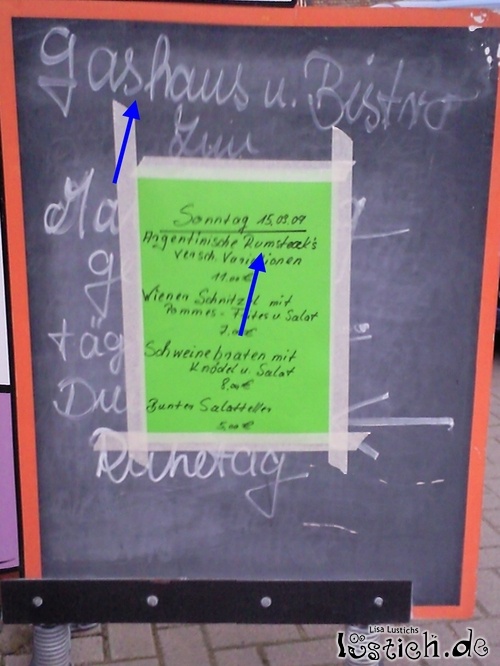 Gashaus u. Bistro
Zum
Ma
g
täg
Du
Ruhetag
Sonntag 15.03.09
Argentinische Rumsteak's
versch. Variationen
11.00€
Wiener Schnitzel mit
Pommes-Frites u Salat
7.00€
Schweinebraten mit
Knödel u. Salat
8,00€
Bunter Salatteller
5,00€
Lisa Lustichs
lustich.de